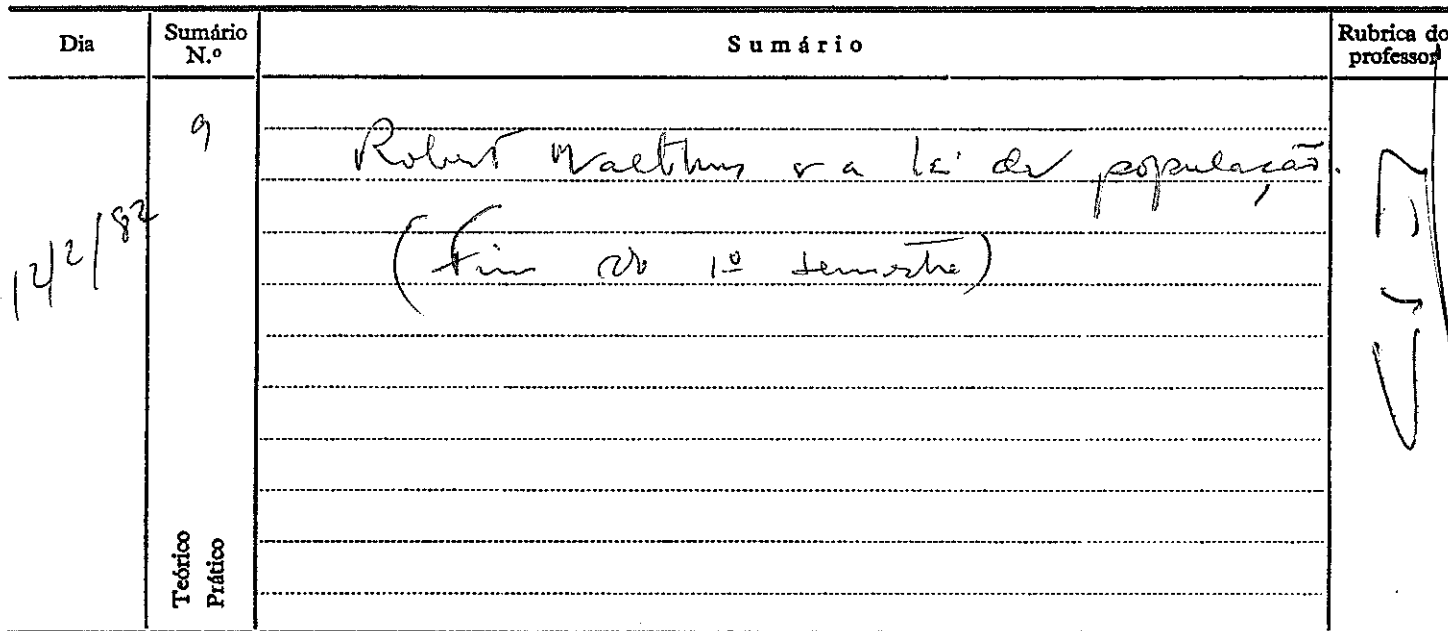 Dia
Sumário N.º
Sumário
Rubrica do professor
12/2/82
9
Robert Malthus e a lei da população.
(Fim do 1º semestre)
Teórico
Prático